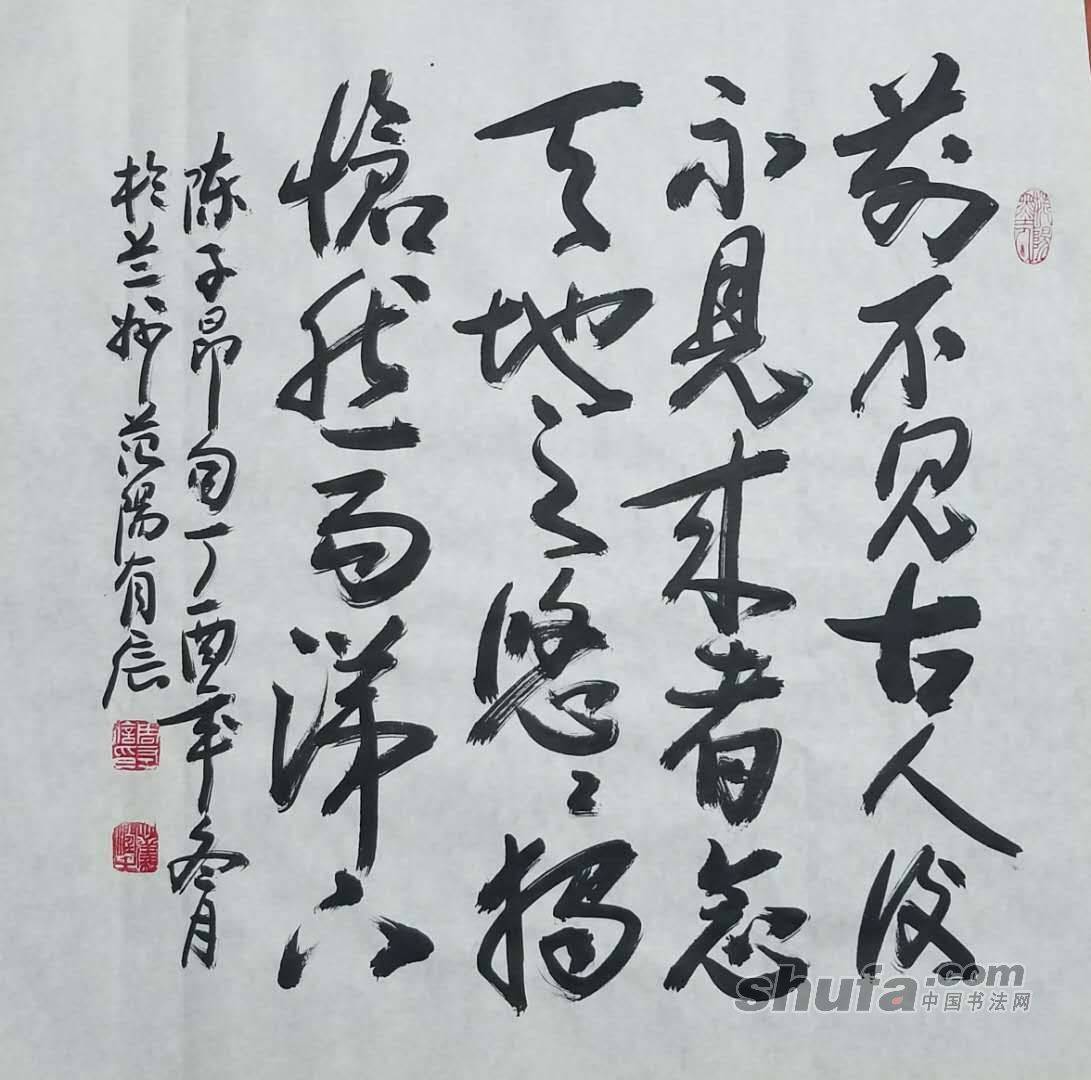 前不見古人後
永見来者念
天地之悠〻獨
愴然而涕下
陈子昂句丁酉年冬月
於兰州范陽有辰
shufa.com
中国书法网